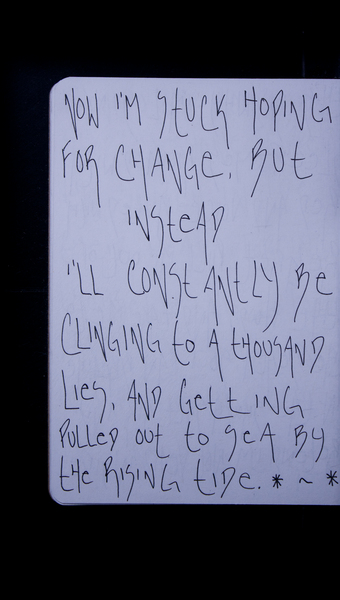 NOW I'M STUCK HOPING
FOR CHANGE. BUT
INSTEAD
I'LL CONSTANTLY BE
CLINGING to A tHOUSAND
LIES, AND GETTING
PULLED OUT to SEA BY
tHE RISING TIDE. * ~ *